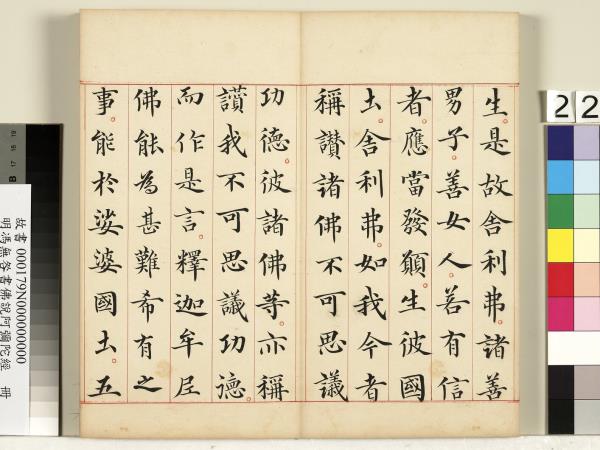 生是故舍利弗諸善
男子善女人若有信
者應當發願生彼國
土舍利弗如我今者
稱讚諸佛不可思議
功德彼諸佛等亦稱
讚我不可思議功德
而作是言釋迦牟尼
佛能為甚難希有之
事能於娑婆國土五
22
故書 000179N000000000
明馮無咎書佛說阿彌陀經 冊